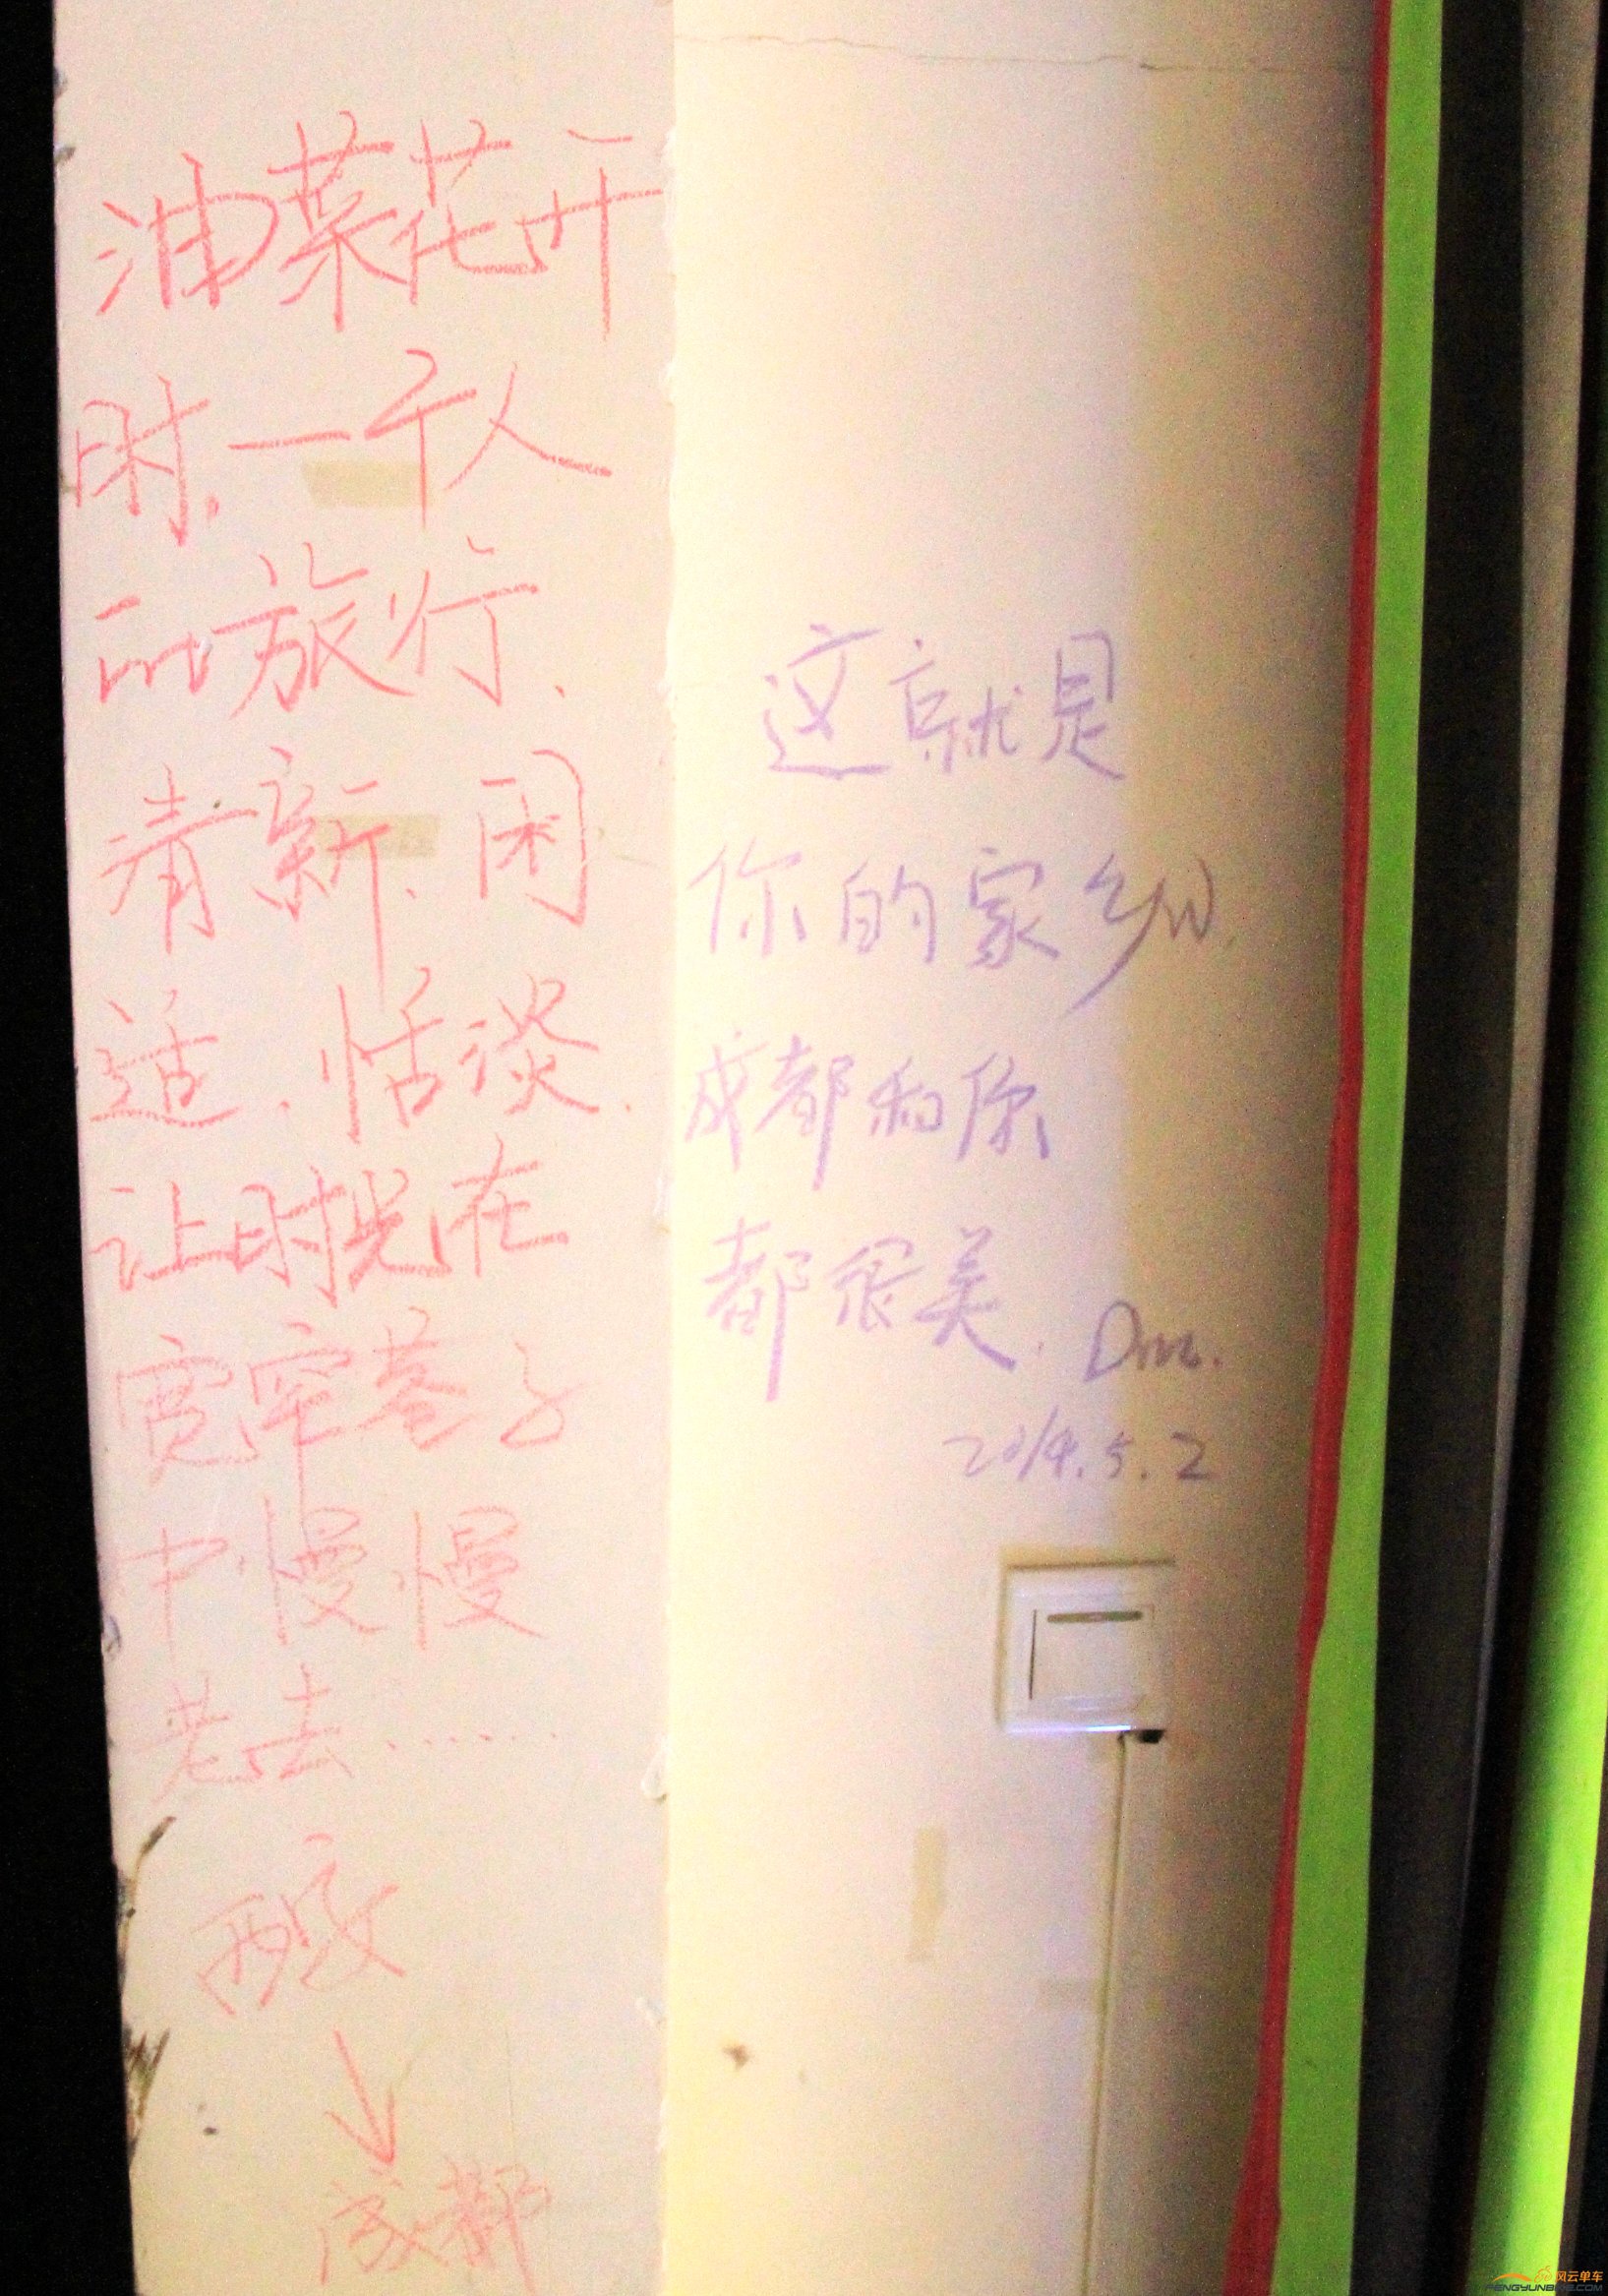 油菜花开
时,一个人
的旅行.
清新、闲
适、恬淡.
让时光在
宽窄巷子
中慢慢
老去……
西安
↓
成都
这就是
你的家乡.
成都和你
都很美.
2014.5.2
风云单车
FENGYUNBIKE.COM